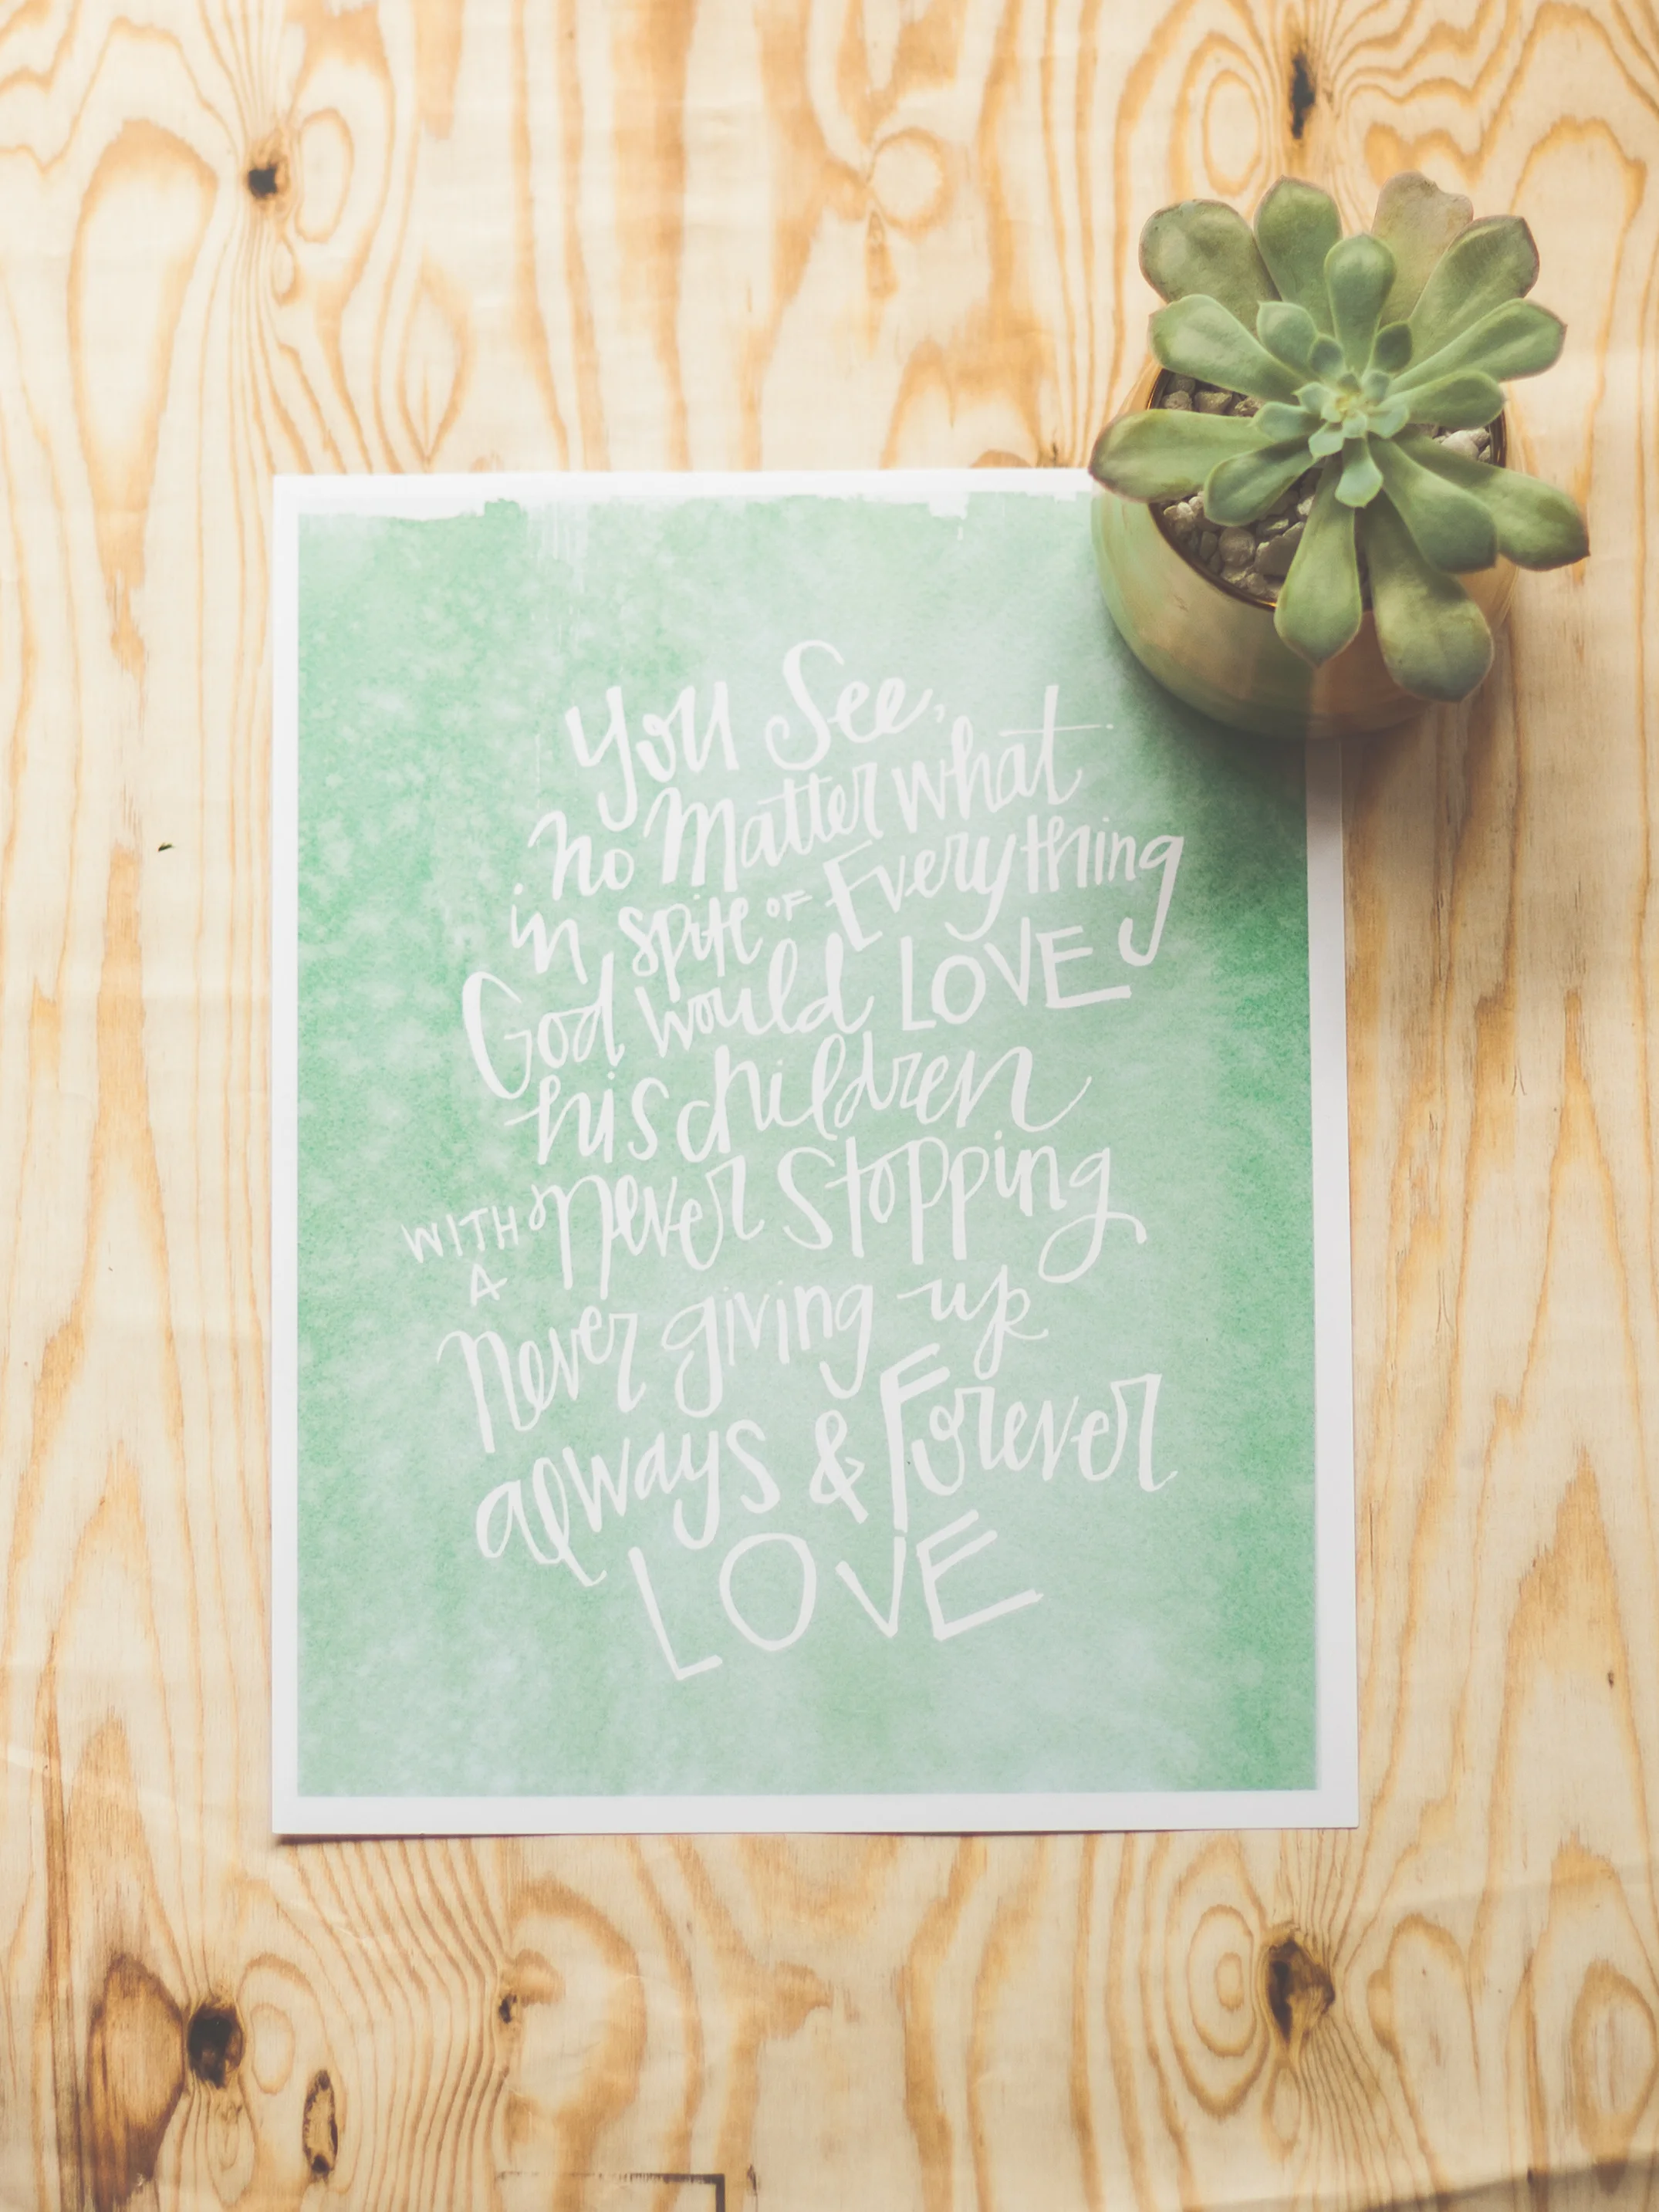 You See,
no matter what
in spite OF Everything
God would LOVE
his children
WITH A never stopping
never giving up
always & Forever
LOVE